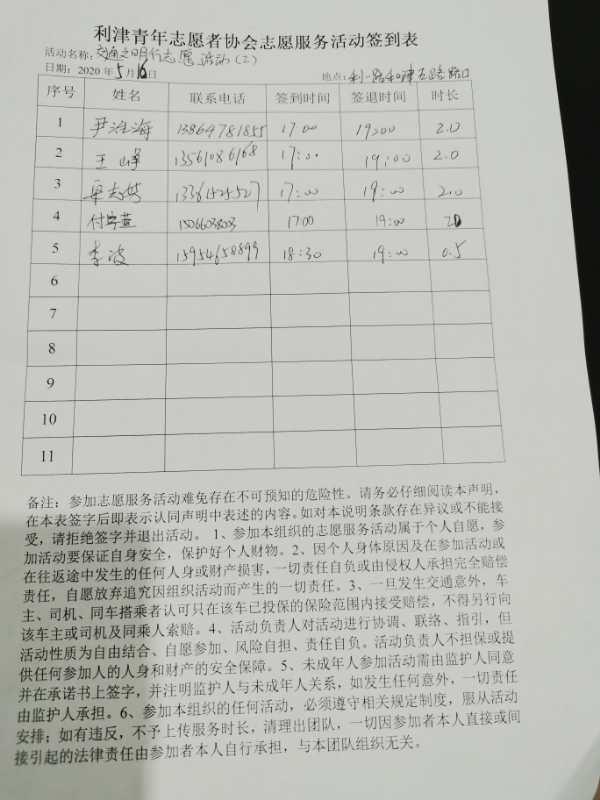 利津青年志愿者协会志愿服务活动签到表
活动名称：交通文明行志愿活动(2)
日期：2020年5月16日 地点：利一路和津五路路口
序号 姓名 联系电话 签到时间 签退时间 时长
1 尹淮海 13864781855 17:00 19:00 2.0
2 王峰 17:00 19:00 2.0
3 17:00 19:00 2.0
4 17:00 19:00 2.0
5 李波 15954658899 18:30 19:00 0.5
6
7
8
9
10
11
备注：参加志愿服务活动难免存在不可预知的危险性。请务必仔细阅读本声明，
在本表签字后即表示认同声明中表述的内容。如对本说明条款存在异议或不能接
受，请拒绝签字并退出活动。 1、参加本组织的志愿服务活动属于个人自愿，参
加活动要保证自身安全，保护好个人财物。2、因个人身体原因及在参加活动或
在往返途中发生的任何人身或财产损害，一切责任自负或由侵权人承担完全赔偿
责任，自愿放弃追究因组织活动而产生的一切责任。3、一旦发生交通意外，车
主、司机、同车搭乘者认可只在该车已投保的保险范围内接受赔偿，不得另行向
该车主或司机及同乘人索赔。4、活动负责人对活动进行协调、联络、指引，但
活动性质为自由结合、自愿参加、风险自担、责任自负。活动负责人不担保或提
供任何参加人的人身和财产的安全保障。5、未成年人参加活动需由监护人同意
并在承诺书上签字，并注明监护人与未成年人关系，如发生任何意外，一切责任
由监护人承担。6、参加本组织的任何活动，必须遵守相关规定制度，服从活动
安排；如有违反，不予上传服务时长，清理出团队，一切因参加者本人直接或间
接引起的法律责任由参加者本人自行承担，与本团队组织无关。